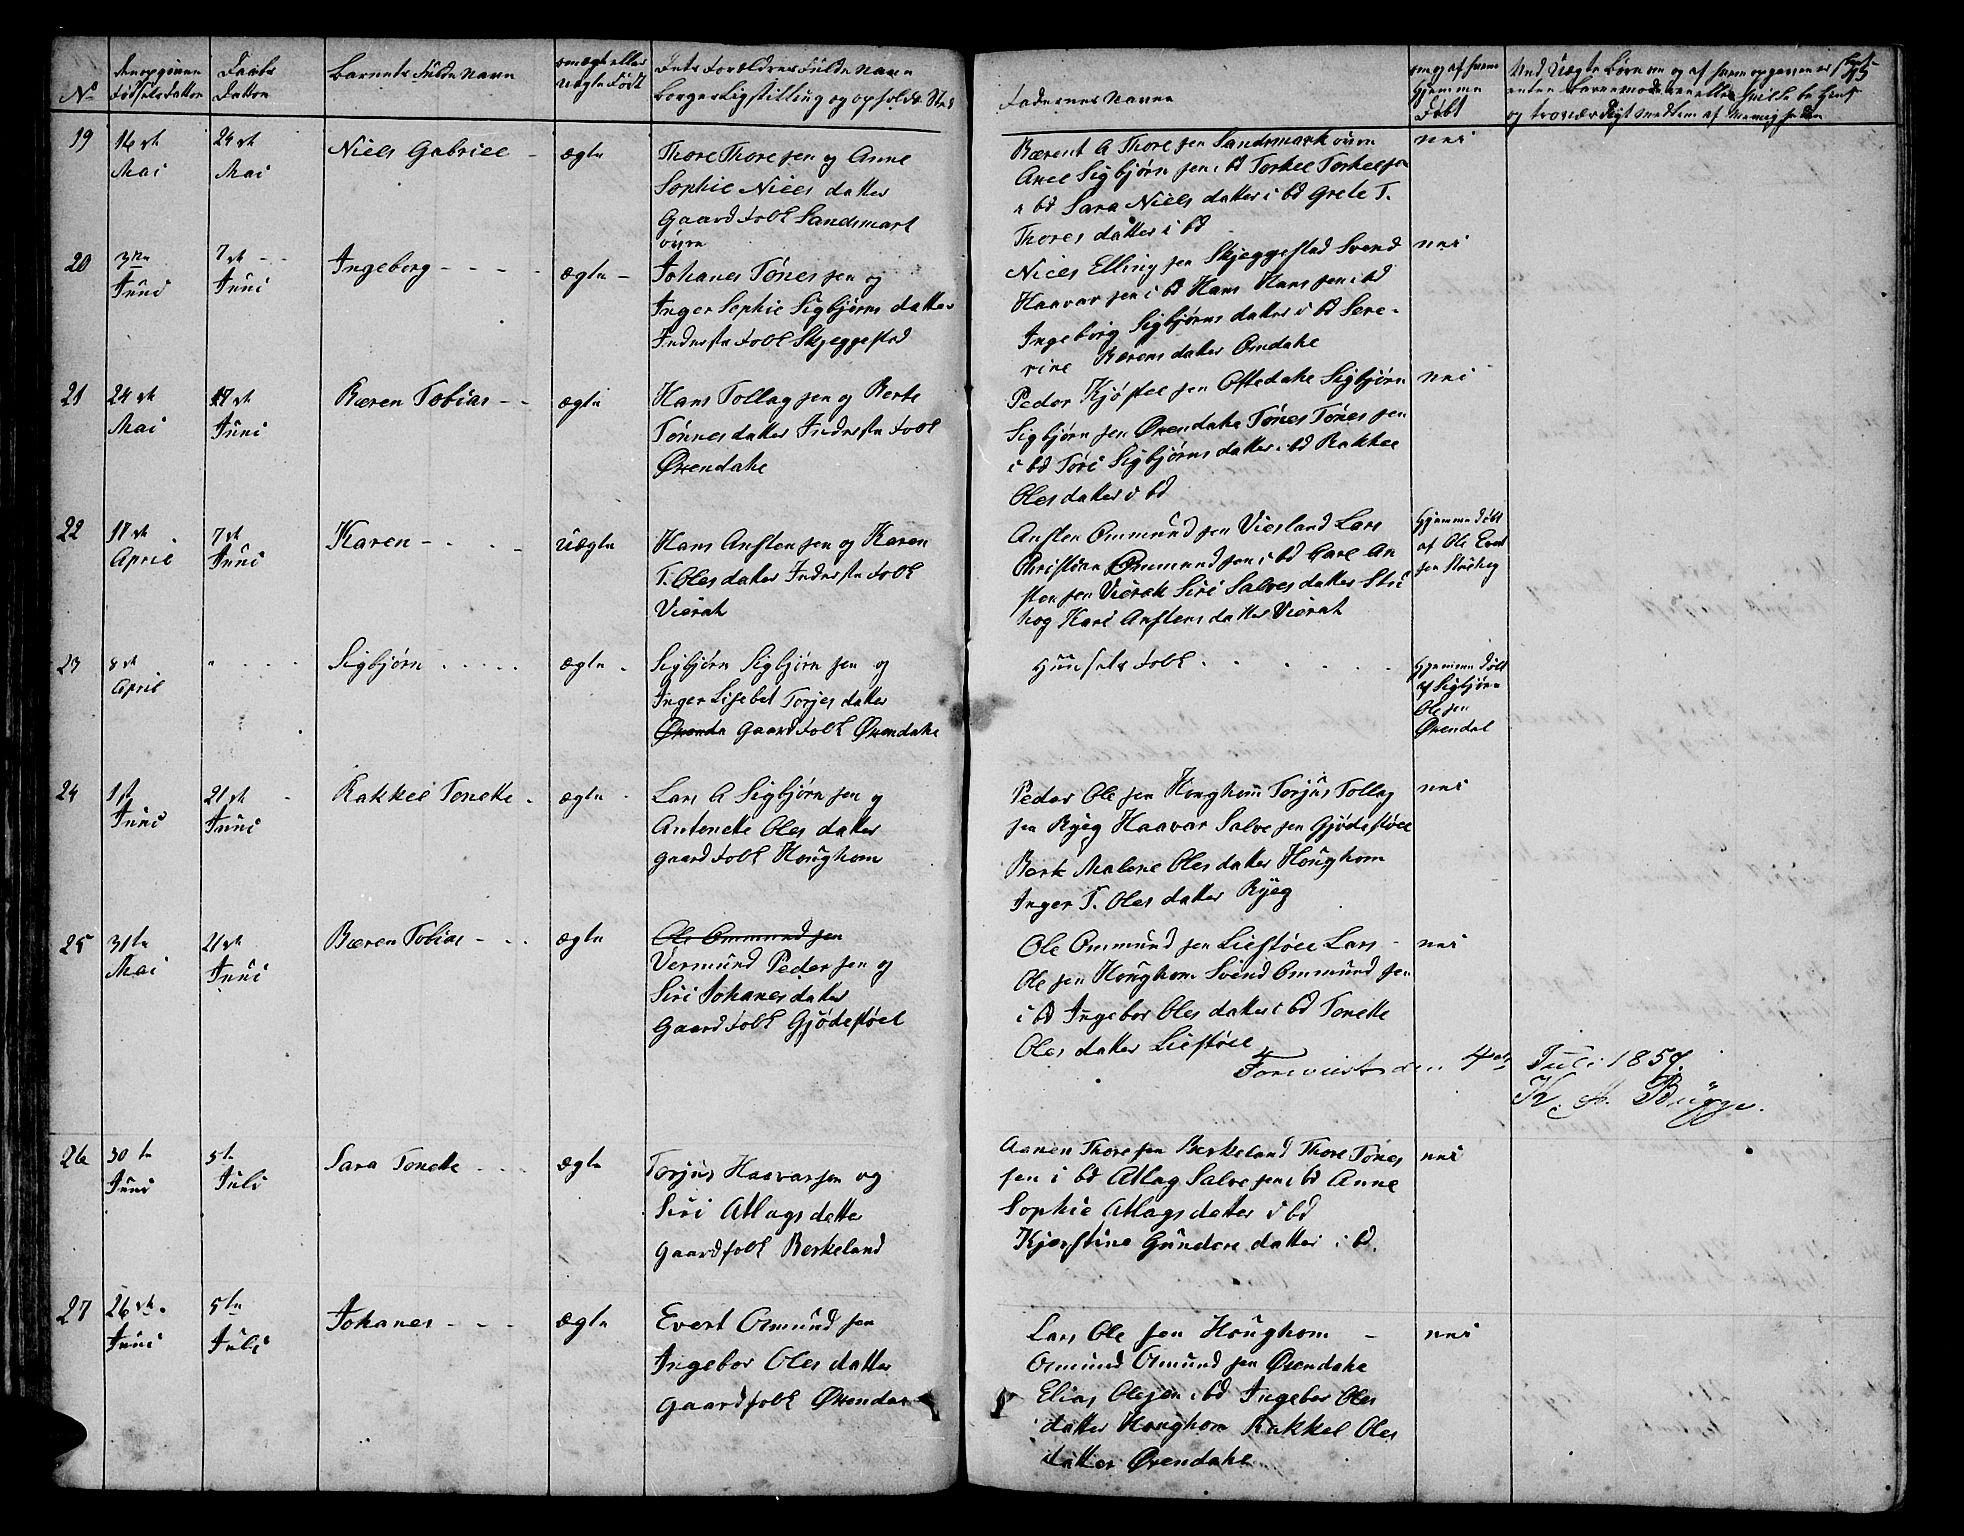 No
den opgivne
Fødsels datton
Daabs
Datton
Barnets Fulde Navn
om ægte eller
Uægte Født
Dets Forældres Fulde Navn
Borgerlig stilling og opholds Sted
Fadernes Navne
om og af hvem
hjemme
Døbt
Ved Uægte Børn om og af hvem opgaven er skeet
og troværdigt
45
19
16 de
Mai
24 de
Mai
Niels Gabriel -
ægte
Thore Thore sen og Anne
Sophie Niels datter
Gaard folk Sandsmark
øvre
Bærent A Thore sen Sandsmark øvre
Axel Sigbjørn sen i bd Torkel Torkelsen
i bd Sara Niels datter i bd Grete T.
Thores datter i bd
nei
20
3die
Juni
7 de
Juni
Ingeborg - - - -
ægte -
Johanes Tønes sen og
Inger Sophie Sigbjørns datter
Inderste folk Skjeggestad
Niels Elling sen Skjeggestad Svend
Haavar sen i bd Hans Hans sen i bd
Ingeborg Sigbjørns datter i bd Sere-
rine Bærens datter Omdahe
nei
21
24 de
Mai
17 de
Juni
Bæren Tobias - -
ægte
Hans Tollag sen og Berte
Tønnes datter Inderste folk
Øvendahe
Peder Kjøstel sen Oftedahe Sigbjørn
Sigbjørn sen Øvendahe Tønes Tønes sen
i bd Tøri Sigbjørns datter i bd Rakkel
Oles datter i bd
nei
22
17 de
April
7 de
Juni
Karen - - - -
Uægte
Hans Ansten sen og Karen
T. Oles datter Inderste folk
Vierak
Ansten Ommund sen Viesland Lars
Christian Ommund sen i bd Carl An
sten sen Vierak Siri Salves datter Stu
hog Kari Anstens datter Vierak
hjemme døbt
af Ole Evert
sen Stuhog
23
8 de
April
Sigbjørn - - - - -
ægte -
Sigbjørn Sigbjørn sen og
Inger Lisebet Torjes datter
Øvenda Gaard folk Øvendahe
Huusets folk
hjemme døbt
af Sigbjørn
Ole sen
Øvendal
24
1 st
Juni
21 de
Juni
Rakkel Tonette -
ægte -
Lars A Sigbjørn sen og
Antonette Oles datter
Gaard folk Houghom
Peder Ole sen Houghom Torjus Tollag
sen Ryeg Haavar Salve sen Gjødestøel
Berte Malene Oles datter Houghom
Inger T. Oles datter Ryeg
nei
25
31te
Mai
21 de
Juni
Bæren Tobias - - -
ægte
Ole Ommund sen
Vermund Peder sen og
Siri Johanes datter
Gaard folk Gjødestøel
Ole Ommund sen Liestøel Lars -
Ole sen Houghom Svend Ommund sen
i bd Ingebor Oles datter i bd Tonette
Oles datter Liestøel
nei
Foreviist den 4de Juli 1857.
K. A. Bugge.
26
30 te
Juni
5te
Juli
Sara Tonette - - -
ægte
Torjus Haavarsen og
Siri Atlags datter
Gaardfolk Berkeland
Aanen Thore sen Berkeland Thore Tønes
sen i bd Atlag Salve sen i bd Anne
Sophie Atlags datter i bd
Kjerstine Gundere datter i bd.
nei
27
26 de.
Juni
5te
Juli
Johanes - - -
ægte
Evert Omund sen
Ingebor Oles datter
Gaardfolk Øvendae
Lars Ole sen Houghom -
Omund Omund sen Øvendahe
Elias Olesen i bd Ingebor Oles
datter Houghom Rakkel Oles
datter Øvendahe
nei